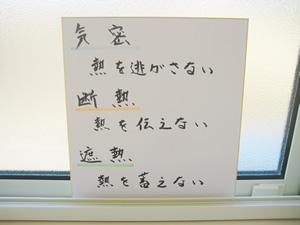 気密
熱を逃がさない
断熱
熱を伝えない
遮熱
熱を蓄えない